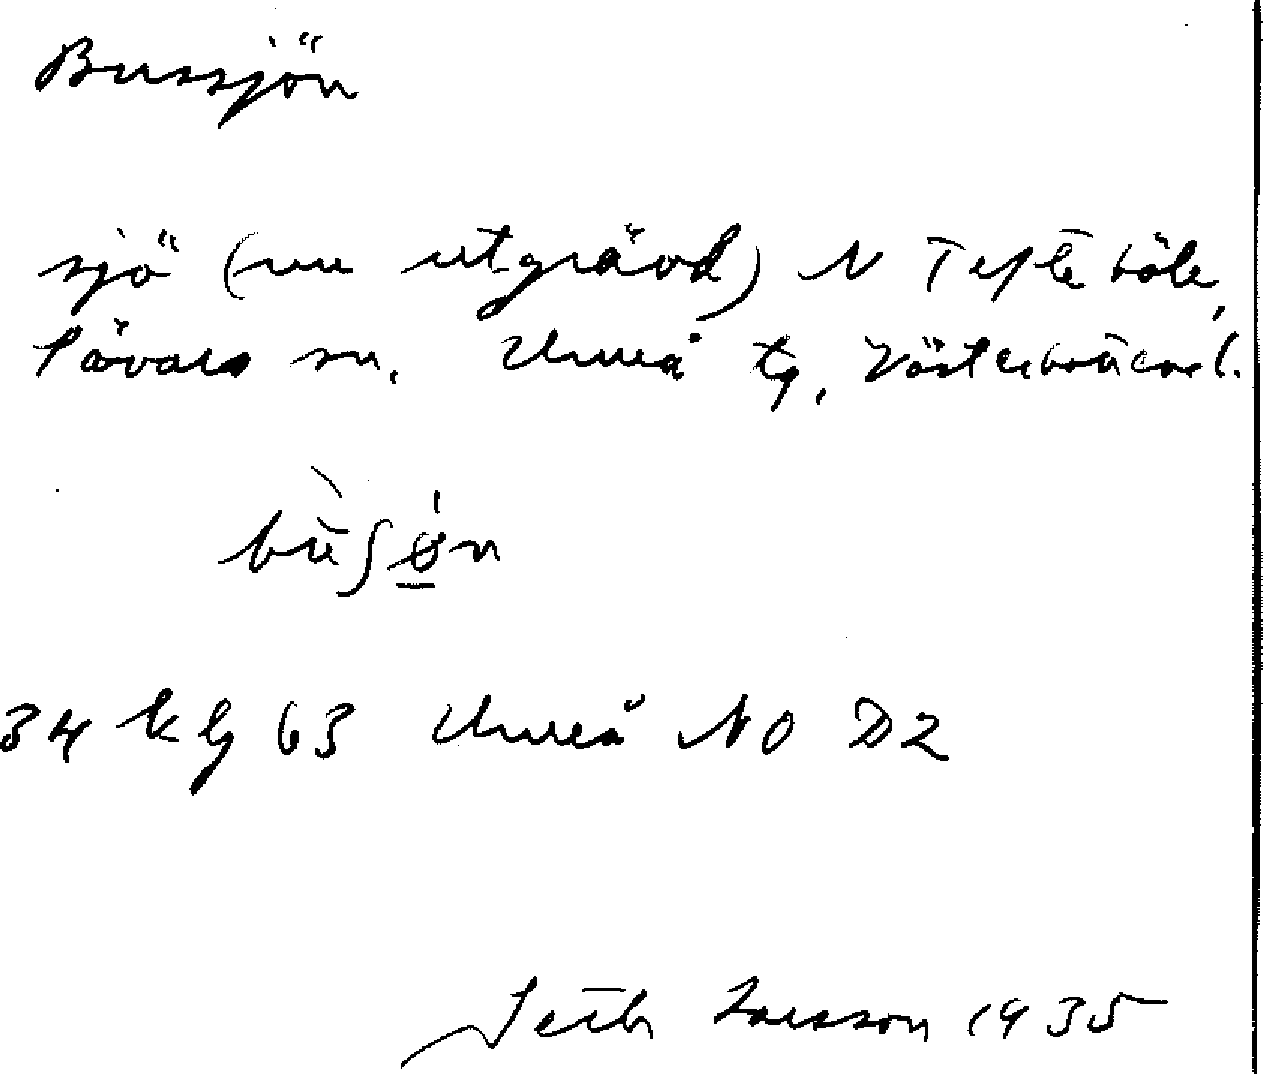 Bussjön
sjö (nu utgrävd) N Tefteböle,
Sävars sn. Umeå tg, Västerbottens l.
34 Kg 63 Umeå NO D2
Seth Larsson 1935